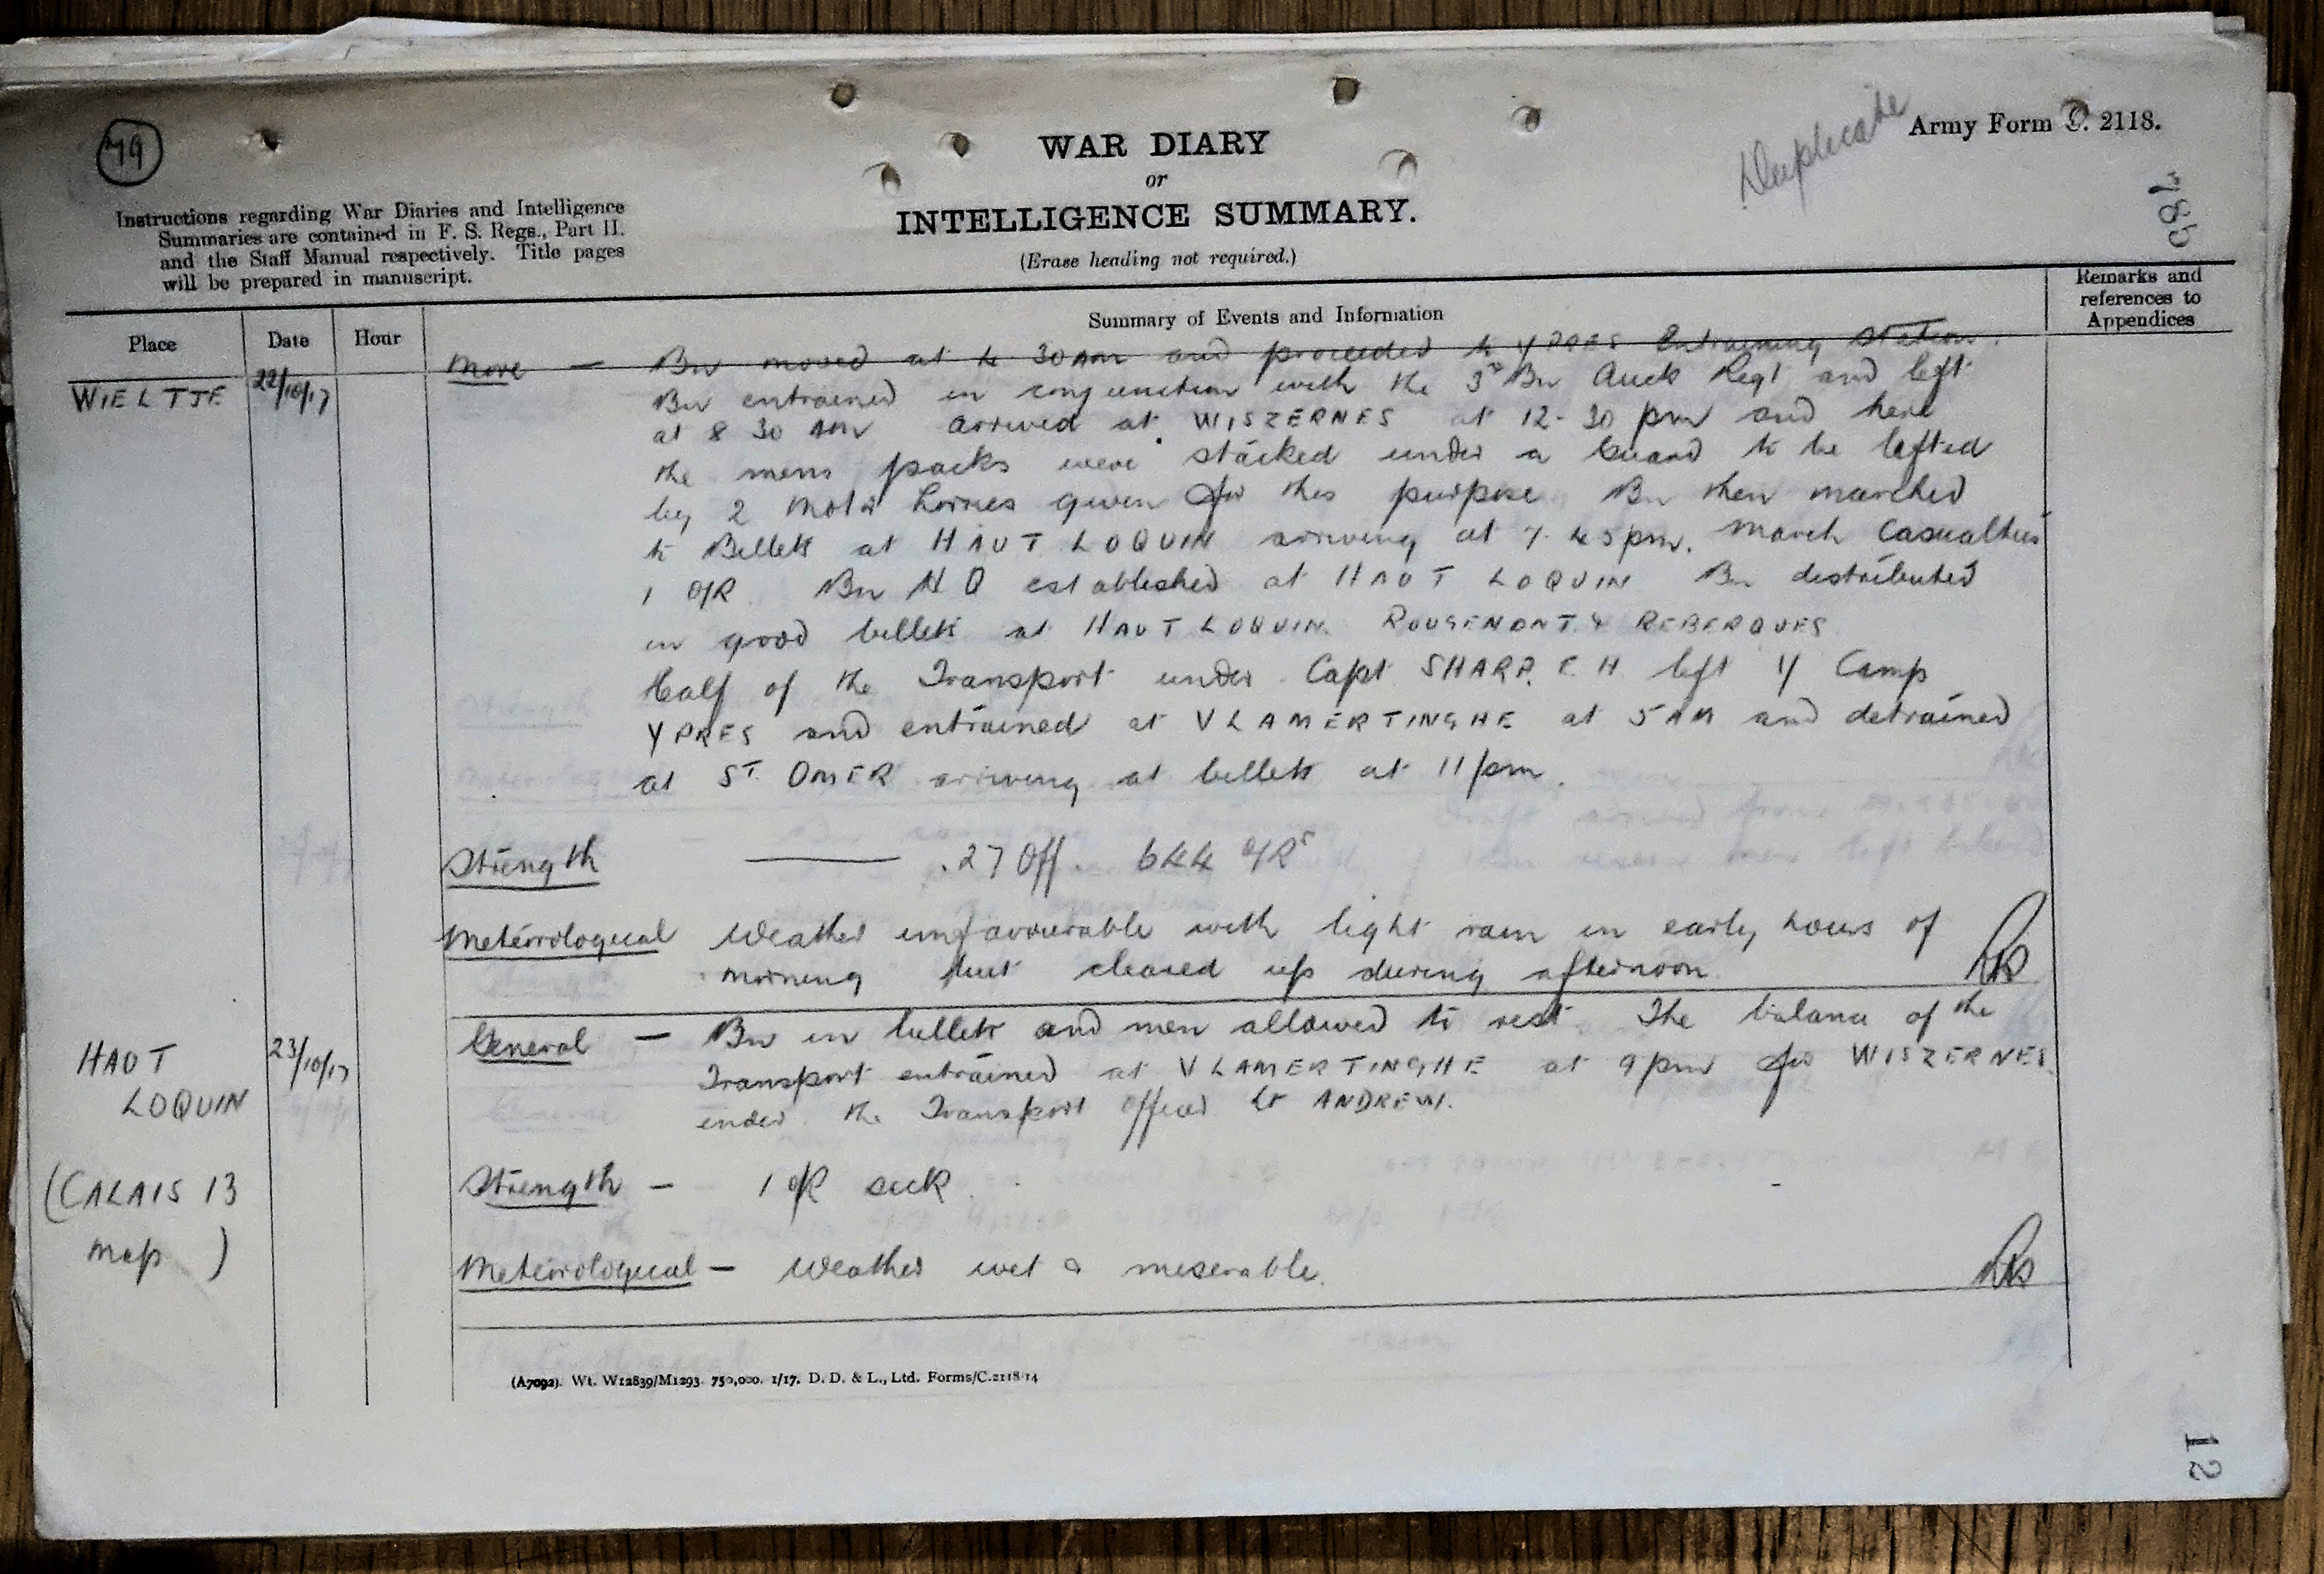 79
Duplicate
Army Form C. 2118.
785
WAR DIARY
or
INTELLIGENCE SUMMARY.
(Erase heading not required.)
Instructions regarding War Diaries and Intelligence
Summaries are contained in F. S. Regs., Part II.
and the Staff Manual respectively. Title pages
will be prepared in manuscript.
Place Date Hour Summary of Events and Information Remarks and
references to
Appendices
WIELTJE 22/10/17 Move — Bn moved at 4 30 AM and proceeded to YPRES Entraining Station.
Bn entrained in conjunction with the 3rd Bn Auck Regt and left
at 8 30 AM arrived at WISZERNES at 12-30 pm and here
the mens packs were stacked under a Guard to be lifted
by 2 Motor Lorries given for this purpose Bn then marched
to Billets at HAUT LOQUIN arriving at 7.45pm. March Casualties
1 O/R Bn HQ established at HAUT LOQUIN Bn distributed
in good billets at HAUT LOQUIN. ROUGEMONT & REBERQUES
Half of the Transport under Capt SHARP. E H left Y Camp
YPRES and entrained at VLAMERTINGHE at 5 AM and detrained
at ST. OMER arriving at billets at 11 pm.
Strength — 27 Off. 644 O/Rs
Meteorological Weather unfavourable with light rain in early hours of
morning but cleared up during afternoon
HAUT LOQUIN 23/10/17 General — Bn in billets and men allowed to rest. The balance of the
Transport entrained at VLAMERTINGHE at 9 pm for WISZERNES
under the Transport Officer Lt ANDREW.
(CALAIS 13 Map) Strength — 1 O/R sick
Meteorological — Weather wet & miserable.
(A7092). Wt. W12839/M1293. 750,000. 1/17. D. D. & L., Ltd. Forms/C.2118/14
12